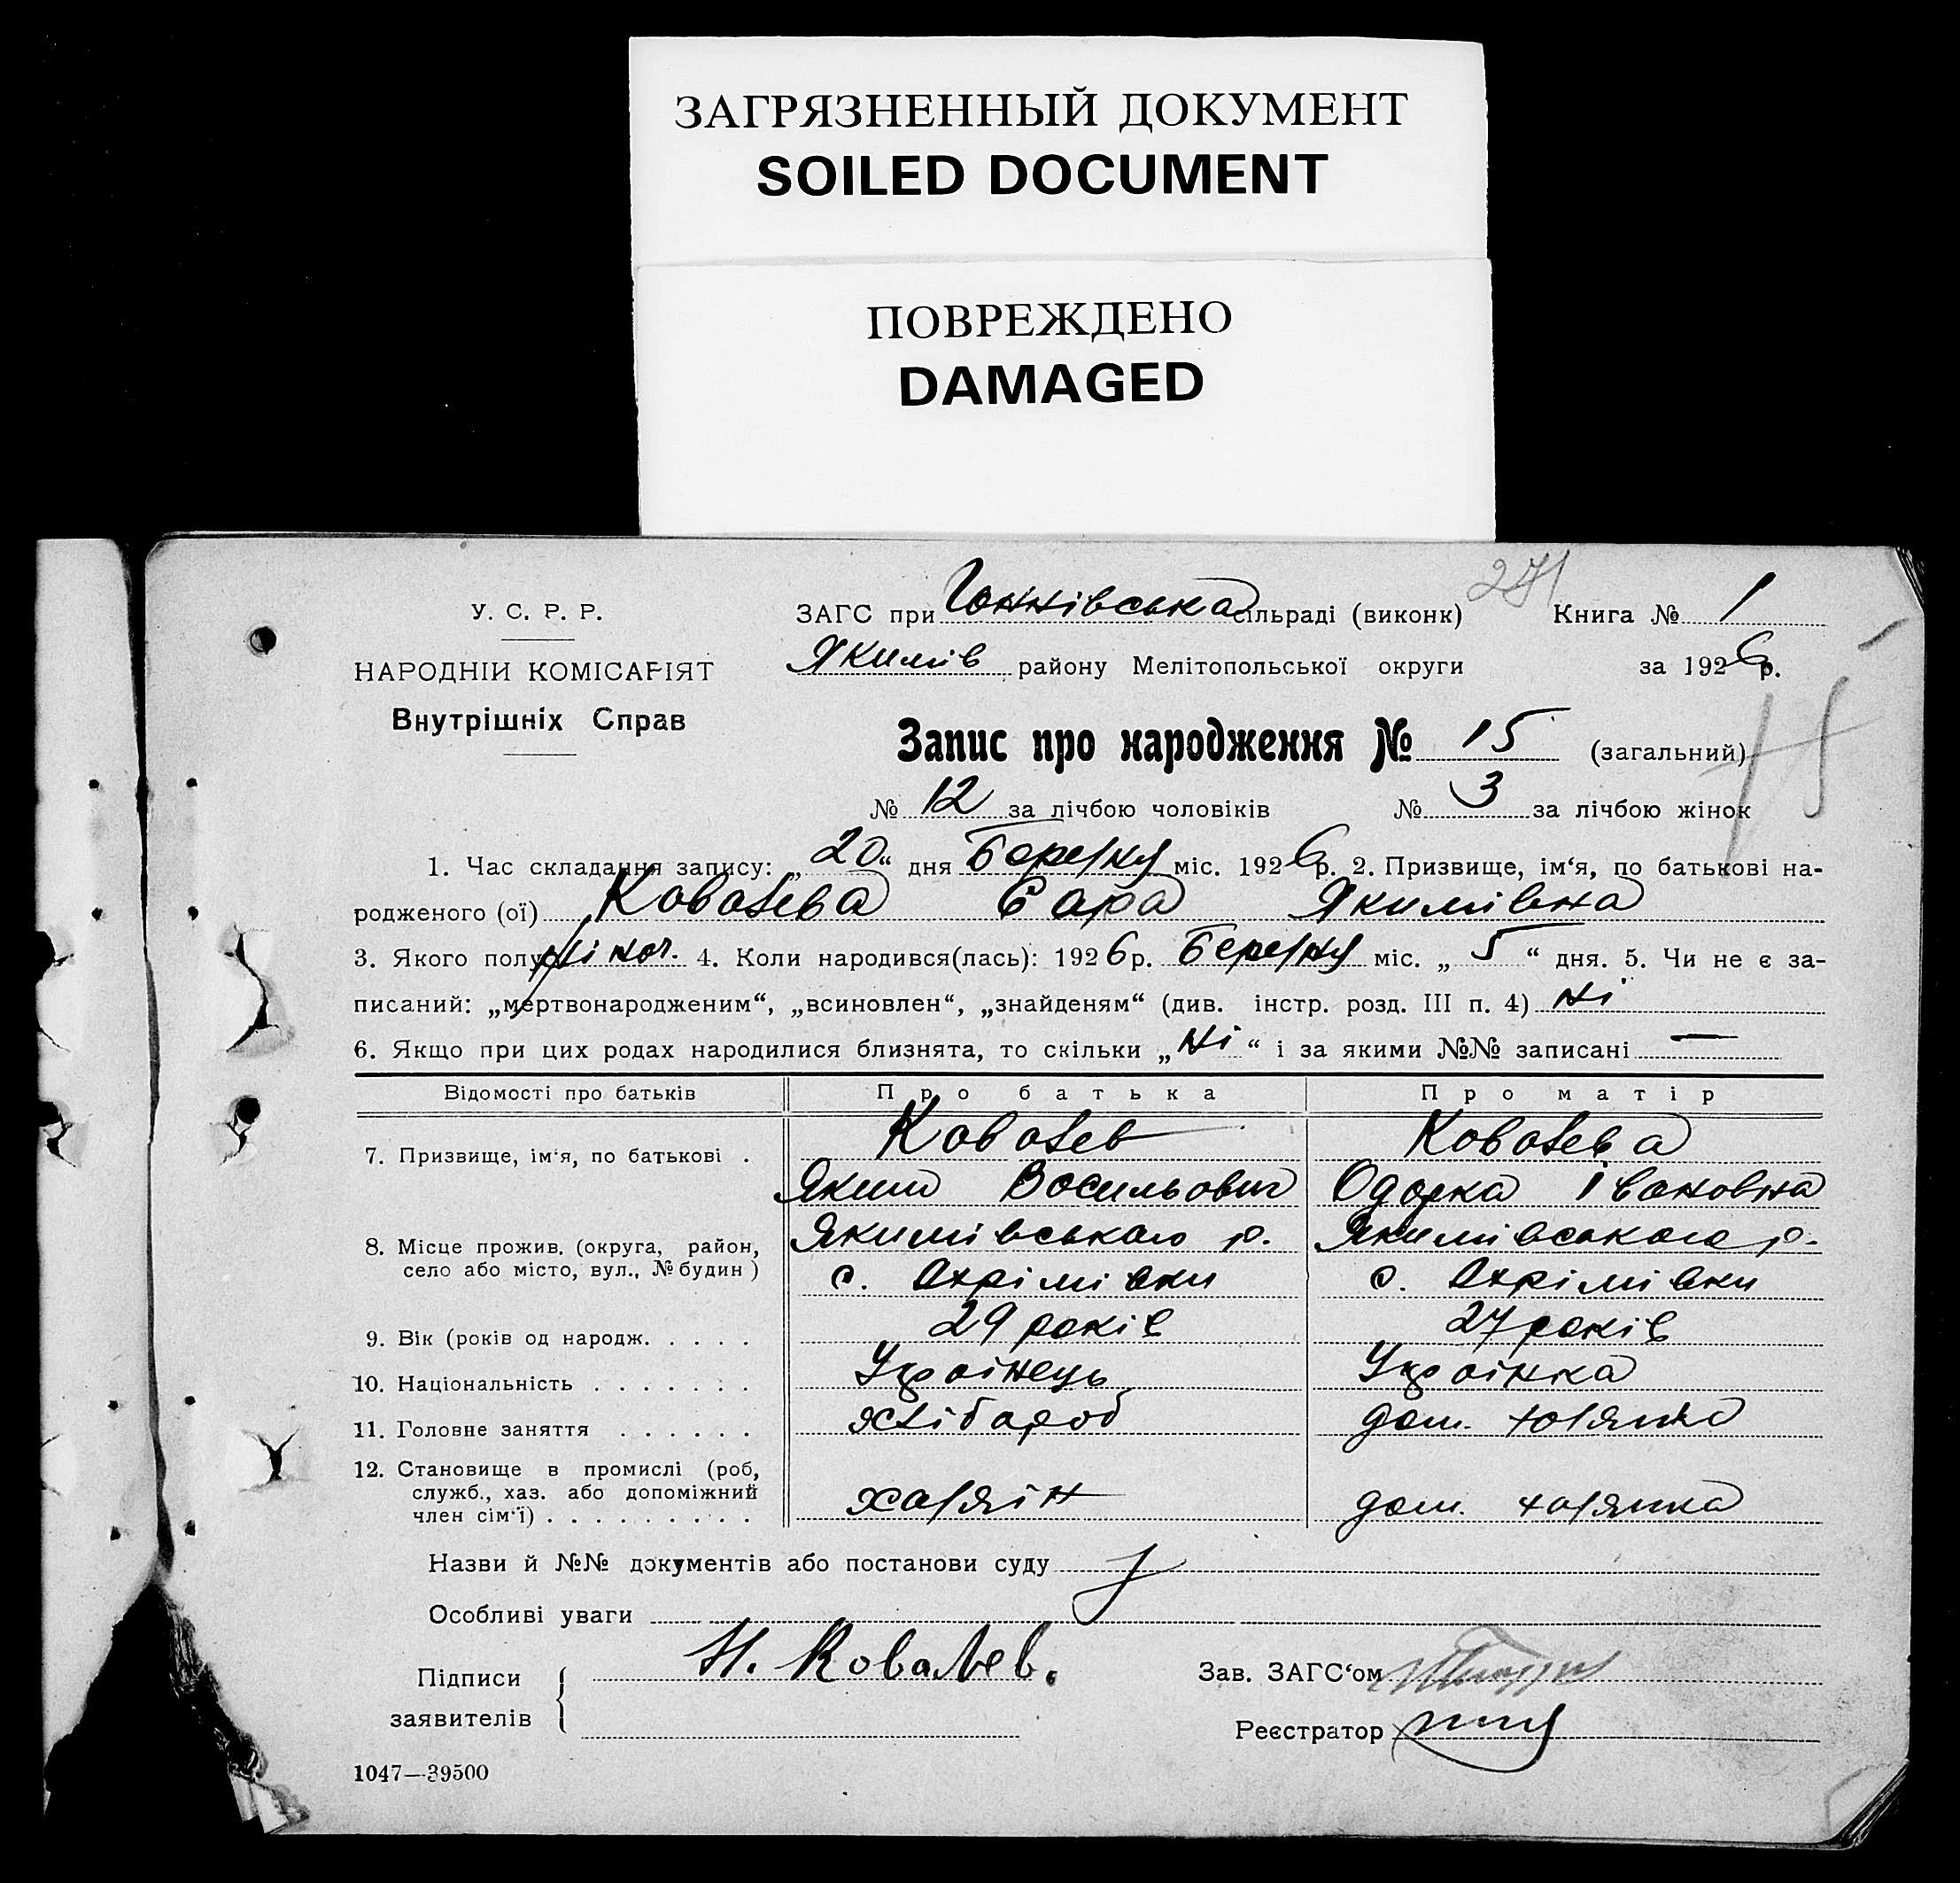 ЗАГРЯЗНЕННЫЙ ДОКУМЕНТ
SOILED DOCUMENT
ПОВРЕЖДЕНО
DAMAGED
271
У. С. Р. Р.
ЗАГС при сільраді (виконк) Книга № 1
НАРОДНІЙ КОМІСАРІЯТ
Якимів району Мелітопольської округи за 1926 р.
Внутрішніх Справ
Запис про народження № 15 (загальний)
15
№ 12 за лічбою чоловіків № 3 за лічбою жінок
1. Час складання запису: „ 20 “ дня Березня міс. 1926 р. 2. Призвище, ім‘я, по батькові на-
родженого (ої) Ковалева Сара Якимівна
3. Якого полу жіноч. 4. Коли народився(лась): 1926 р. Березня міс. „ 5 “ дня. 5. Чи не є за-
писаний: „мертвонародженим“, „всиновлен“, „знайденям“ (див. інстр. розд. III п. 4) ні
6. Якщо при цих родах народилися близнята, то скільки „ ні “ і за якими №№ записані —
Відомості про батьків Про батька Про матір
7. Призвище, ім‘я, по батькові . Ковалев Ковалева
Яким Васильович Одарка Івановна
8. Місце прожив. (округа, район, село або місто, вул., № будин) Якимівського р. Якимівського р.
с. Охрімівки с. Охрімівки
9. Вік (років од народж. . . . . 29 років 27 років
10. Національність . . . . . . . Українець Українка
11. Головне заняття . . . . . . хлібороб дом. хозяйка
12. Становище в промислі (роб, служб., хаз. або допоміжний член сім‘ї) . . . . . . . . . хазяїн дом. хозяйка
Назви й №№ документів або постанови суду
Особливі уваги
Підписи Н. Ковалев. Зав. ЗАГС‘ом
заявителів Реєстратор
1047—39500